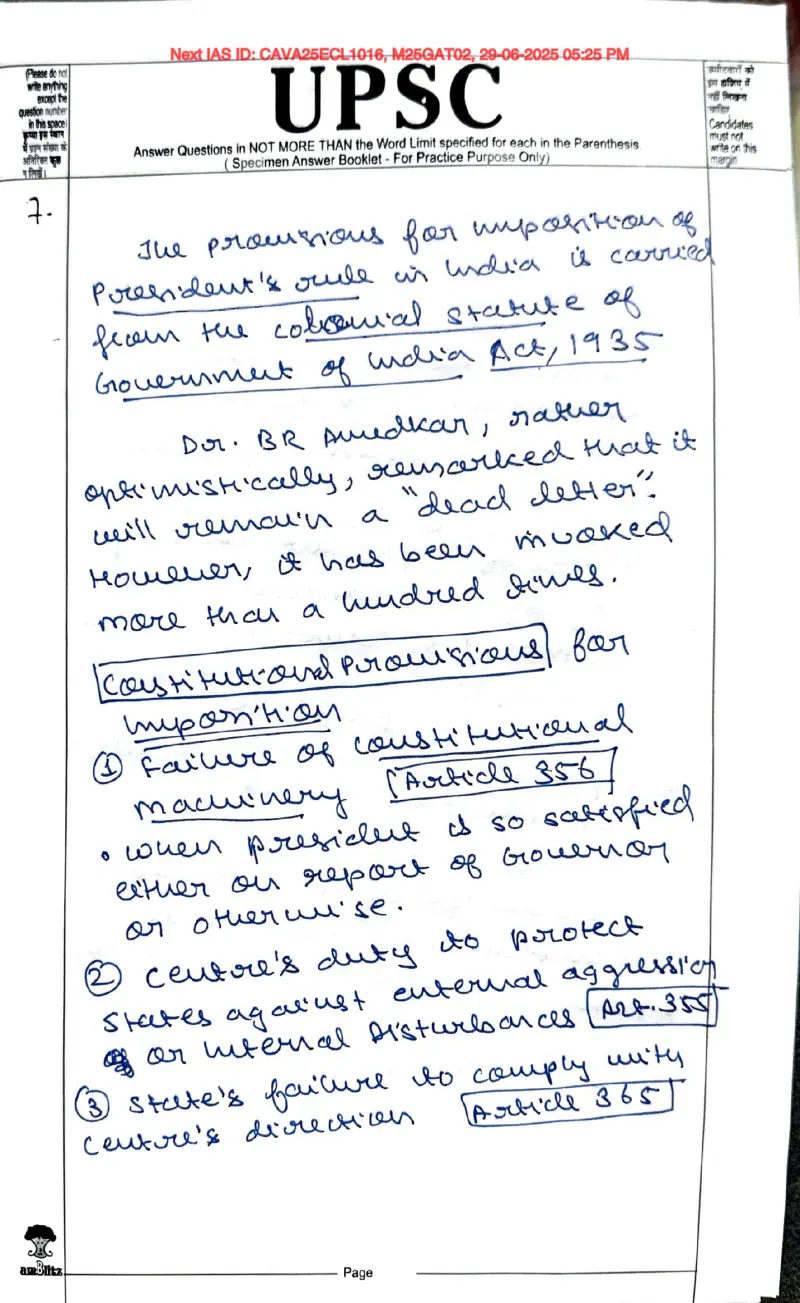 Next IAS ID: CAVA25ECL1016, M25GAT02, 29-06-2025 05:25 PM
(Please do not
write anything
except the
question number
in this space)
कृपया इस स्थान
में प्रश्न संख्या के
अतिरिक्त कुछ
न लिखें।
UPSC
Answer Questions in NOT MORE THAN the Word Limit specified for each in the Parenthesis
( Specimen Answer Booklet - For Practice Purpose Only)
उम्मीदवारों को
इस हाशिए में
नहीं लिखना
चाहिए
Candidates
must not
write on this
margin
7.
The provisions for imposition of
President's rule in India is carried
from the colonial statute of
Government of India Act, 1935
Dr. BR Amedkar, rather
optimistically, remarked that it
will remain a "dead letter".
However, it has been invoked
more than a hundred times.
Constitutional Provisions for
Imposition
① Failure of constitutional
machinery Article 356
• When president is so satisfied
either on report of Governor
or otherwise.
② Centre's duty to protect
states against external aggression
or Internal Disturbances Art. 355
③ State's failure to comply with
centre's direction Article 365
Page